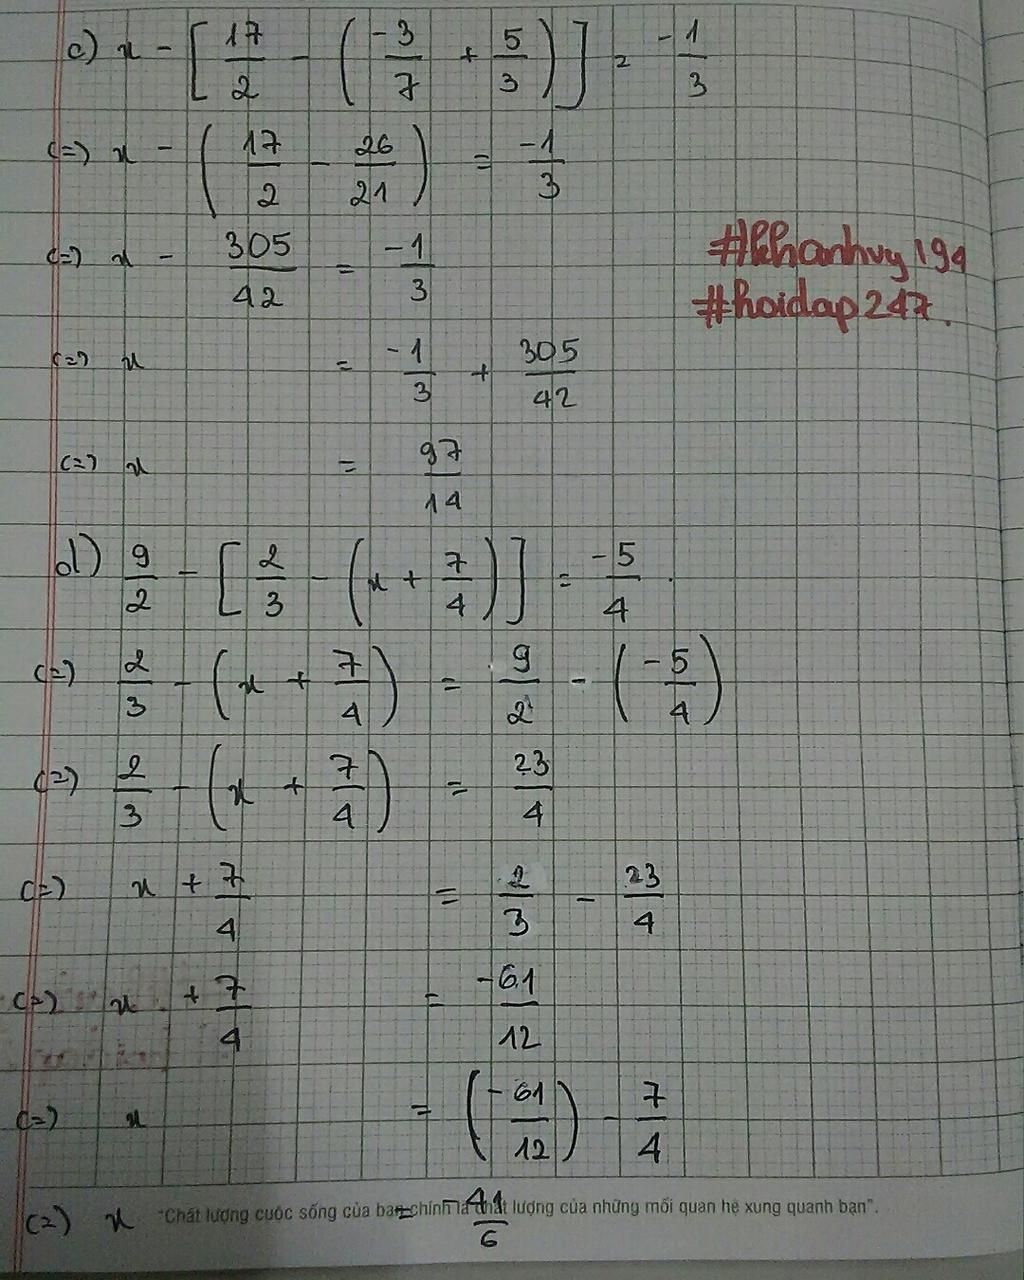 c) x - [17/2 - (-3/7 + 5/3)] = -1/3
(=) x - (17/2 - 26/21) = -1/3
(=) x - 305/42 = -1/3
#khanhvy194
#hoidap247.
(=) x = -1/3 + 305/42
(=) x = 97/14
d) 9/2 - [2/3 - (x + 7/4)] = -5/4.
(=) 2/3 - (x + 7/4) = 9/2 - (-5/4)
(=) 2/3 - (x + 7/4) = 23/4
(=) x + 7/4 = 2/3 - 23/4
(=) x + 7/4 = -61/12
(=) x = (-61/12) - 7/4
(=) x = -41/6
"Chất lượng cuộc sống của bạn chính là chất lượng của những mối quan hệ xung quanh bạn".